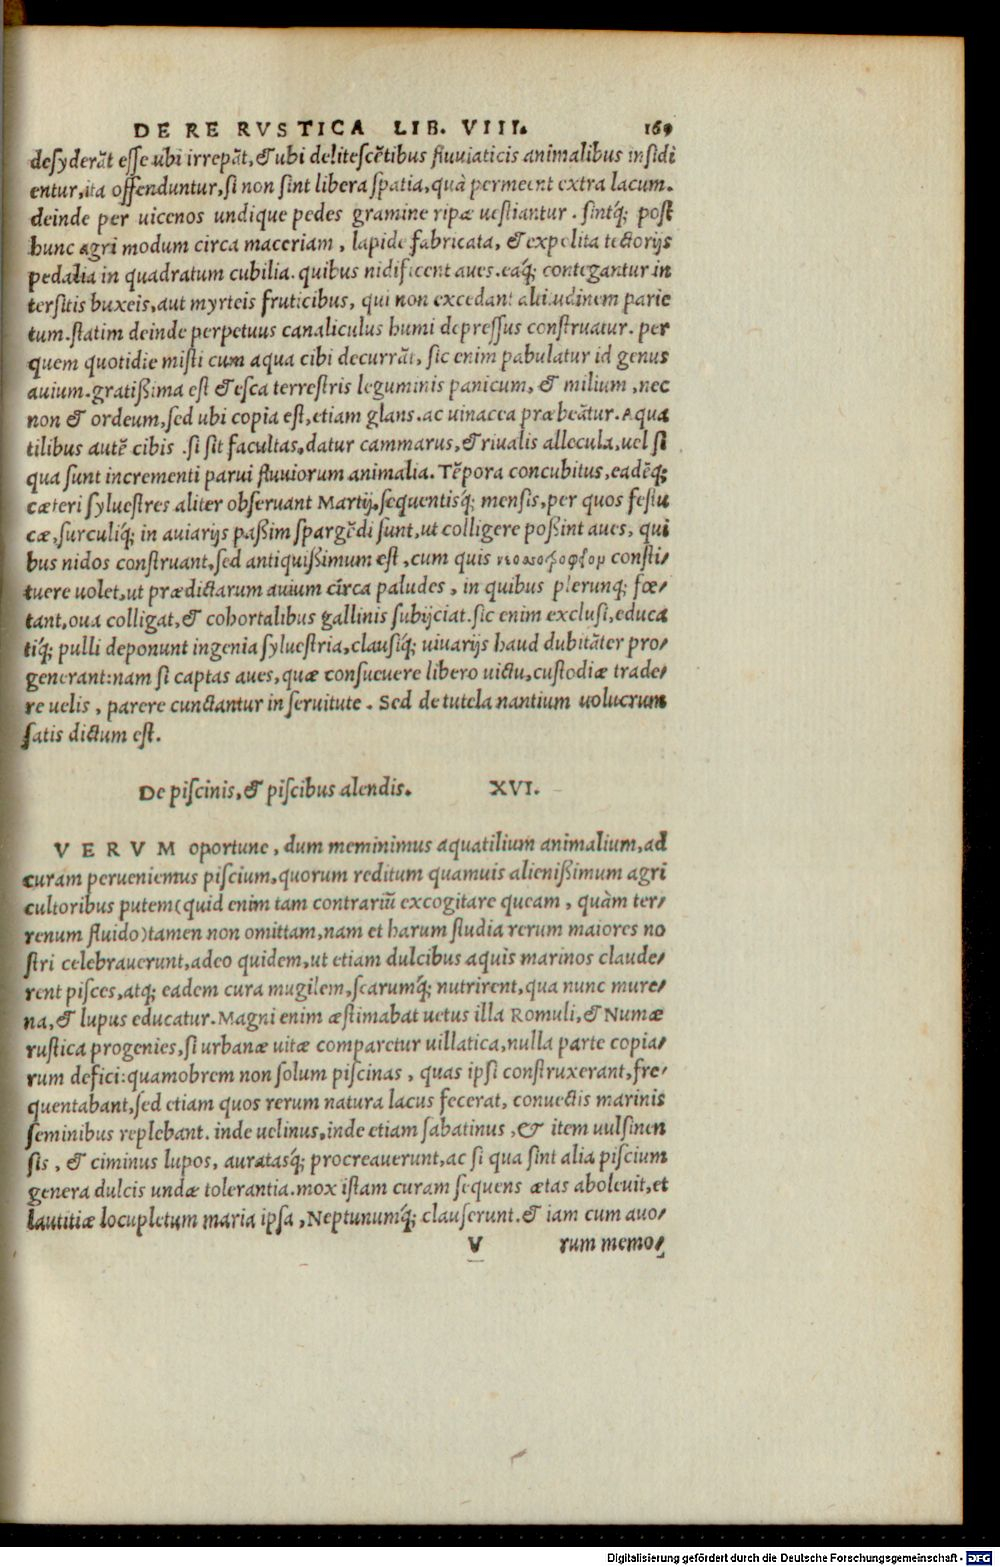 DE RE RVSTICA LIB. VIII. 169
desyderāt esse ubi irrepāt, & ubi delitescētibus fluuiaticis animalibus insidi
entur, ita offenduntur, si non sint libera spatia, quà permeent extra lacum.
deinde per uicenos undique pedes gramine ripæ uestiantur. sintq́; post
hunc agri modum circa maceriam, lapide fabricata, & expolita tectorijs
pedalia in quadratum cubilia. quibus nidificent aues. eaq́; contegantur in
tersitis buxeis, aut myrteis fruticibus, qui non excedant altitudinem parie
tum. statim deinde perpetuus canaliculus humi depressus construatur. per
quem quotidie misti cum aqua cibi decurrāt, sic enim pabulatur id genus
auium. gratißima est & esca terrestris leguminis panicum, & milium, nec
non & ordeum, sed ubi copia est, etiam glans. ac uinacea præbeātur. Aqua
tilibus autē cibis . si sit facultas, datur cammarus, & riualis allecula, uel si
qua sunt incrementi parui fluuiorum animalia. Tēpora concubitus, eadēq́;
cæteri syluestres aliter obseruant Martij, sequentisq́; mensis, per quos festu
cæ, surculiq́; in auiarijs paßim spargēdi sunt, ut colligere poßint aues, qui
bus nidos construant, sed antiquißimum est, cum quis consti⸗
tuere uolet, ut prædictarum auium circa paludes, in quibus plerunq; fœ⸗
tant, oua colligat, & cohortalibus gallinis subijciat. sic enim exclusi, educa
tiq́; pulli deponunt ingenia syluestria, clausiq́; uiuarijs haud dubitāter pro⸗
generant: nam si captas aues, quæ consueuere libero uictu, custodiæ trade⸗
re uelis, parere cunctantur in seruitute. Sed de tutela nantium uolucrum
satis dictum est.
De piscinis, & piscibus alendis. XVI.
VERVM oportune, dum meminimus aquatilium animalium, ad
curam perueniemus piscium, quorum reditum quamuis alienißimum agri
cultoribus putem (quid enim tam contrariū excogitare queam, quàm ter⸗
renum fluido) tamen non omittam, nam et harum studia rerum maiores no
stri celebrauerunt, adeo quidem, ut etiam dulcibus aquis marinos claude⸗
rent pisces, atq; eadem cura mugilem, scarumq́; nutrirent, qua nunc mure⸗
na, & lupus educatur. Magni enim æstimabat uetus illa Romuli, & Numæ
rustica progenies, si urbanæ uitæ comparetur uillatica, nulla parte copia⸗
rum defici: quamobrem non solum piscinas, quas ipsi construxerant, fre⸗
quentabant, sed etiam quos rerum natura lacus fecerat, conuectis marinis
seminibus replebant. inde uelinus, inde etiam sabatinus, & item uulsinen
sis, & ciminus lupos, auratasq́; procreauerunt, ac si qua sint alia piscium
genera dulcis undæ tolerantia. mox istam curam sequens ætas aboleuit, et
lautitiæ locupletum maria ipsa, Neptunumq́; clauserunt. & iam cum auo⸗
V rum memo⸗
Digitalisierung gefördert durch die Deutsche Forschungsgemeinschaft - DFG